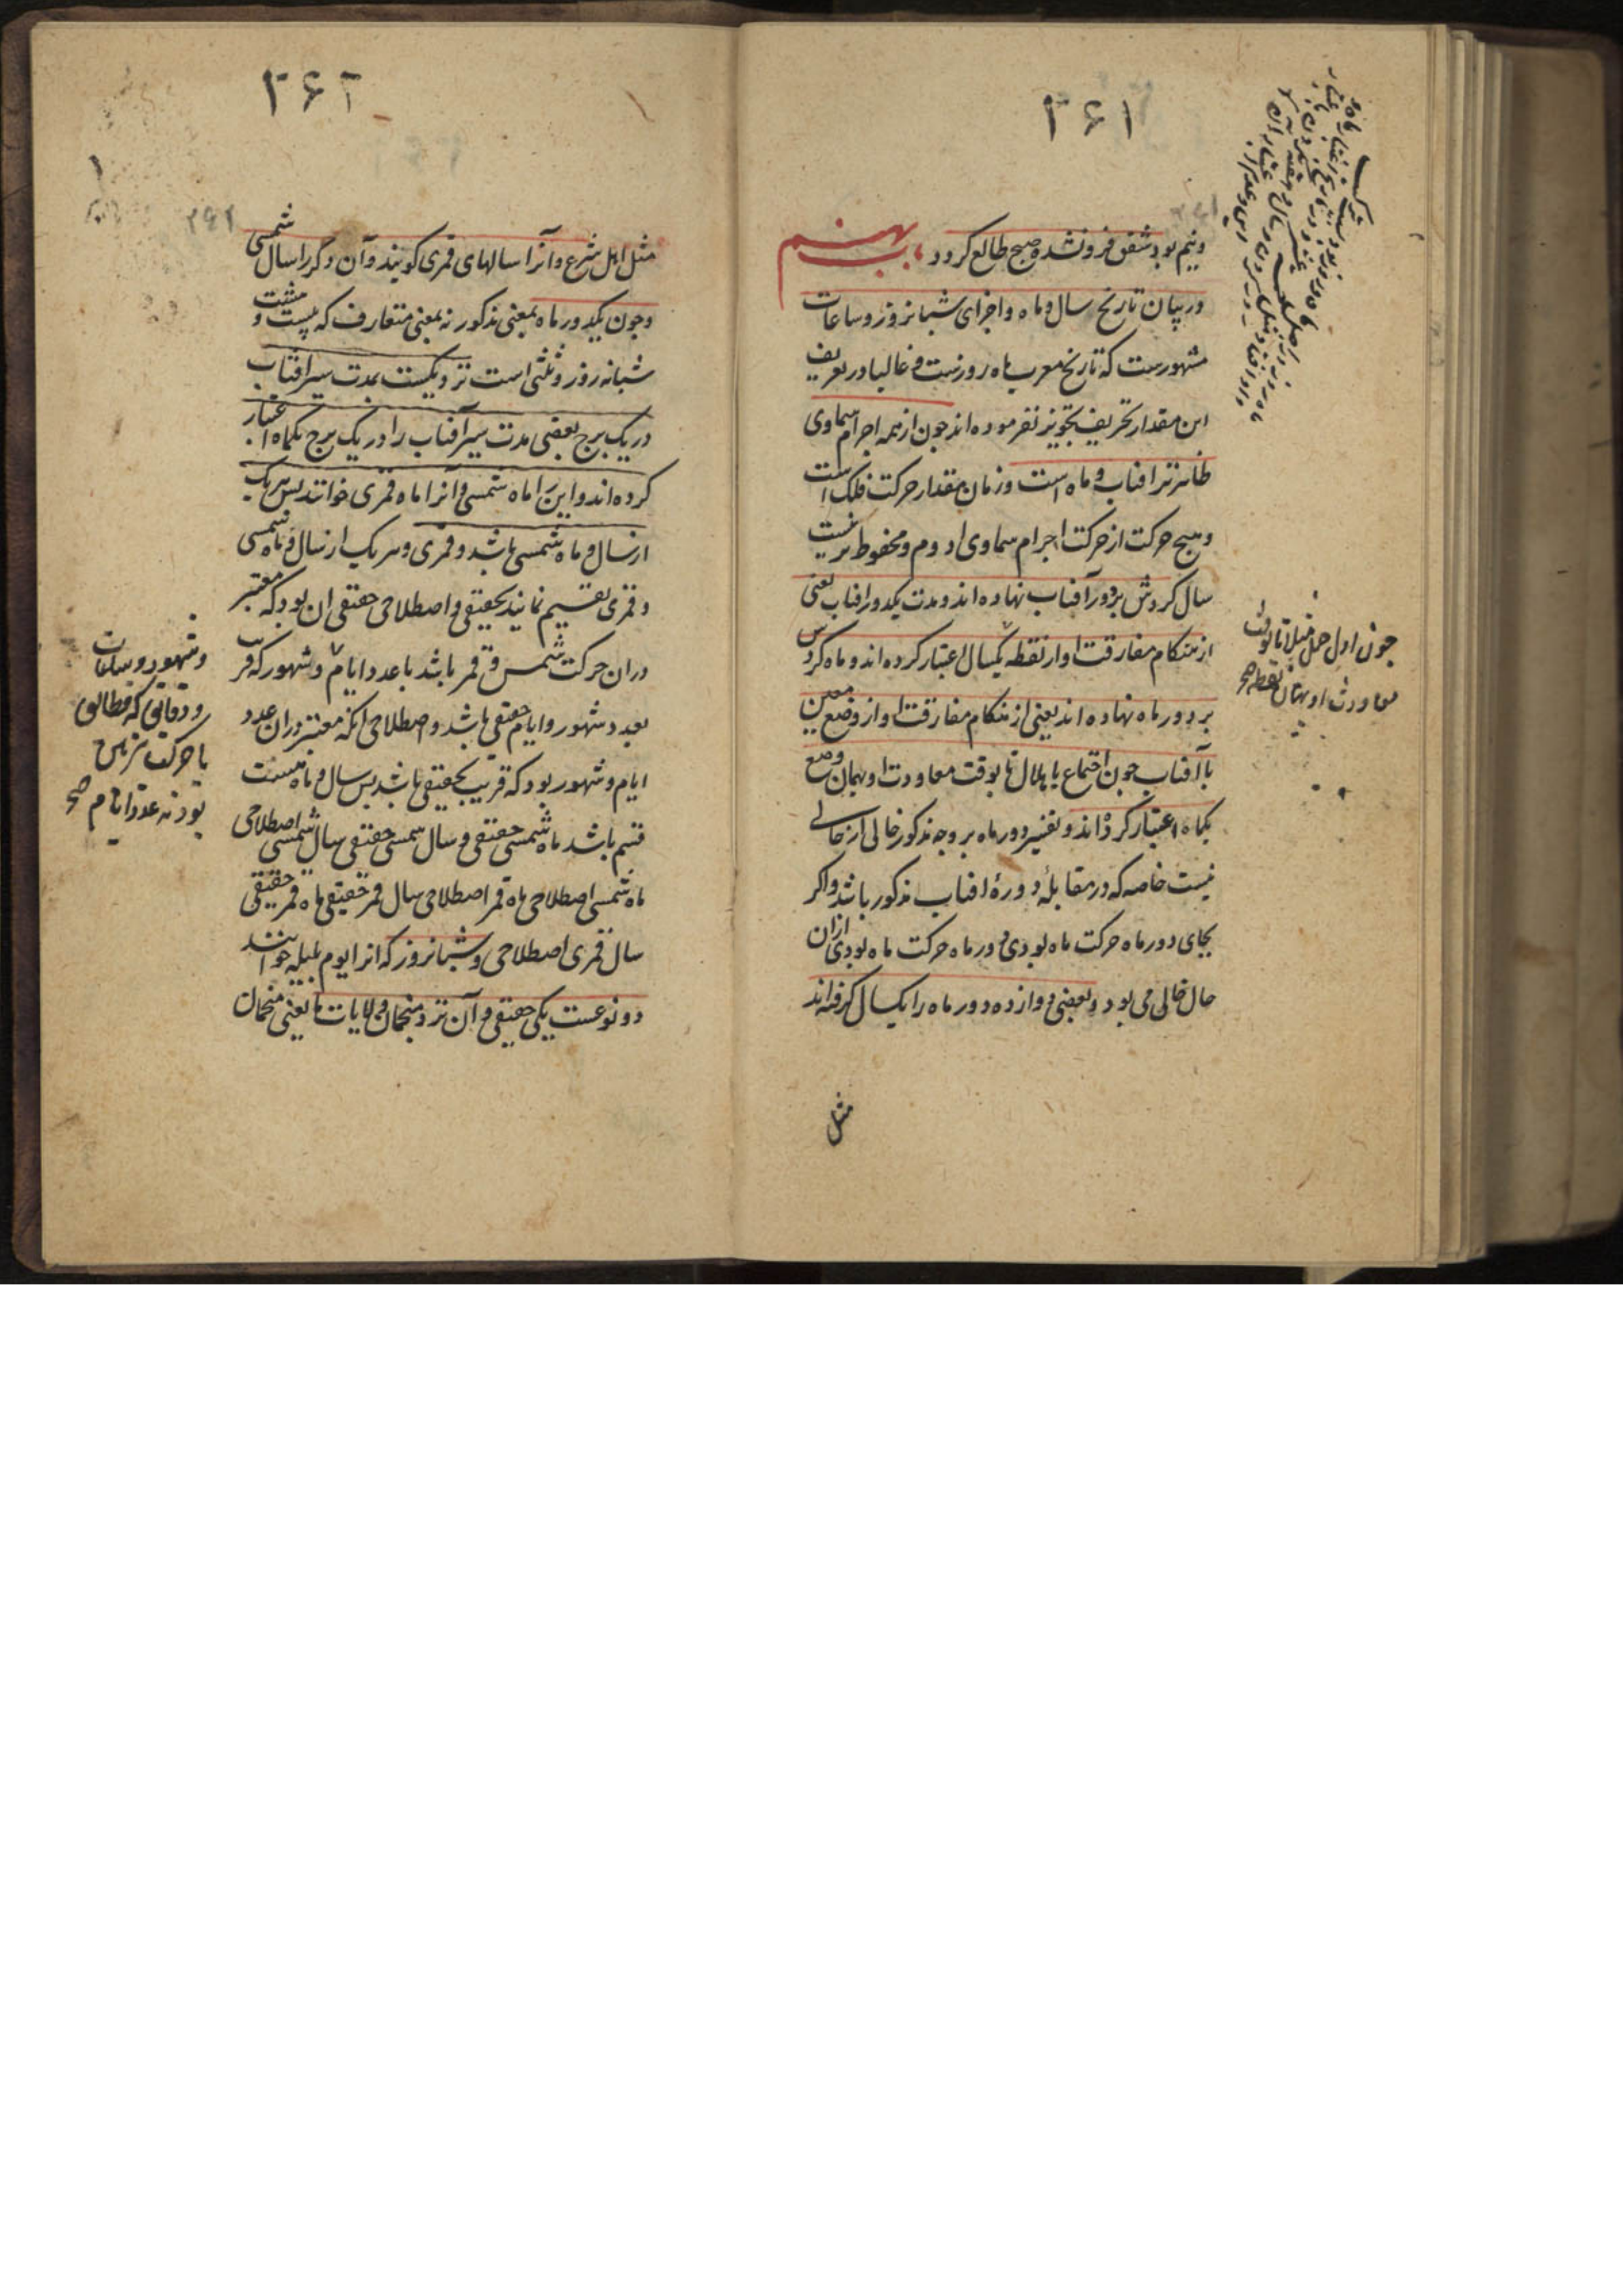 ۳۶۱
ونیم بود شفق فرو نشده صبح طالع کردد باب نهم
در بیان تاریخ سال و ماه و اجزای شبانروز و ساعات
مشهورست که تاریخ معرب ماه روزست و غالبا در تعریف
این مقدار تحریف تجویز نفرموده اند چون از همه اجرام سماوی
ظاهرتر افتاب و ماه است و زمان مقدار حرکت فلک است
و هیچ حرکت از حرکت اجرام سماوی ادوم و محفوظ تر نیست
سال کردش بر دور آفتاب نهاده اند و مدت یکدور افتاب یعنی
از هنکام مفارقت او از نقطه یکسال اعتبار کرده اند و ماه کردس
بر دور ماه نهاده اند یعنی از هنکام مفارقت او از وضع معین
با آفتاب چون اجتماع یا هلال تا بوقت معاودت او بهمان وضع
یکماه اعتبار کرده اند و تفسیر دور ماه بر وجه مذکور خالی از حالی
نیست خاصه که در مقابلهٔ دورهٔ افتاب مذکور باشد و اکر
بجای دور ماه حرکت ماه بودی و دور ماه حرکت ماه بودی ازان
حال خالی می بود و بعضی دوازده دور ماه را یکسال کرفته اند
مثل
چون اول حمل مثلا تا بوقت
معاودت او بهمان نقطه صح
۳۶۲
مثل اهل شرع و آنرا سالهای قمری کویند و آن دکر را سال شمسی
و چون یکدور ماه بمعنی مذکور نه بمعنی متعارف که بیست و هشت
شبانه روز و ثلثی است نزدیکست بمدت سیر افتاب
در یک برج بعضی مدت سیر آفتاب را در یک برج یکماه اعتبار
کرده اند و این را ماه شمسی و آنرا ماه قمری خوانند پس هر یک
از سال و ماه شمسی باشد و قمری و هر یک از سال و ماه شمسی
و قمری تقسیم نمایند بحقیقی و اصطلاحی حقیقی ان بود که معتبر
دران حرکت شمس و قمر باشد با عدد ایام و شهور که قرب
بعدد شهور و ایام حقیقی باشد و اصطلاحی انکه معتبر دران عدد
ایام و شهور بود که قریب بحقیقی باشد پس سال و ماه هشت
قسم باشد ماه شمسی حقیقی و سال شمسی حقیقی سال شمسی اصطلاحی
ماه شمسی اصطلاحی ماه قمر اصطلاحی سال قمر حقیقی ماه قمر حقیقی
سال قمری اصطلاحی و شبانروز که انرا یوم بلیله خوانند
دو نوعست یکی حقیقی و آن نزد منجمان ولایات ما یعنی منجمان
و شهور و ساعات
و دقایق که مطابق
با حرکت
بود نه عدد ایام صح